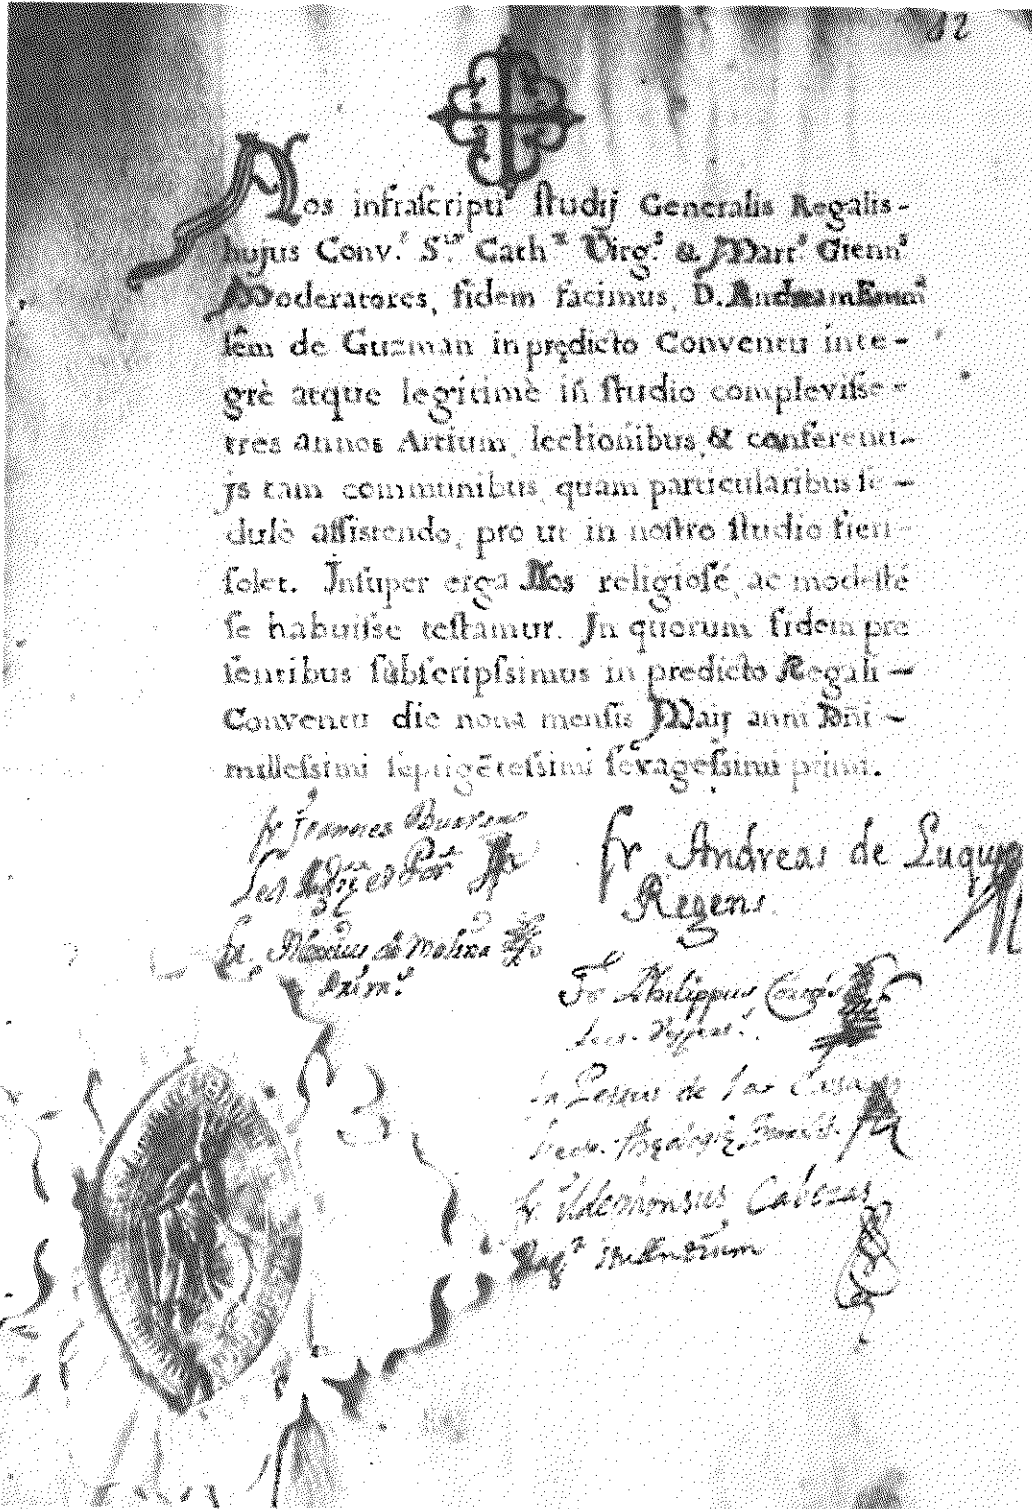 12
Nos infrascripti studij Generalis Regalis-
hujus Conv.t S.tæ Cath.æ Virg.s & Mart.s Gienn.s
Moderatores, fidem facimus, D. Andream Emm
lem de Guzman in prędicto Conventu inte-
grè atque legitimè in studio complevisse-
tres annos Artium, lectionibus, & conferenti-
js tam communibus, quam particularibus se-
dulò assistendo, pro ut in nostro studio fieri-
solet. Insuper erga Nos religiosé, ac modesté
se habuisse testamur. In quorum fidem pre
sentibus subscripssimus in predicto Regali-
Conventu die nona mensis Maij anni Dñi-
millessimi septigētessimi sexagessimi primi.
fr Joannes
fr Andreas de Luque
Regens.
fr. de Molina
Prim.s
Fr Philippus
Lect. Vesper.s
fr Petrus de las Casas
fr. Ildephonsus Cabezas
Mag.r studentium